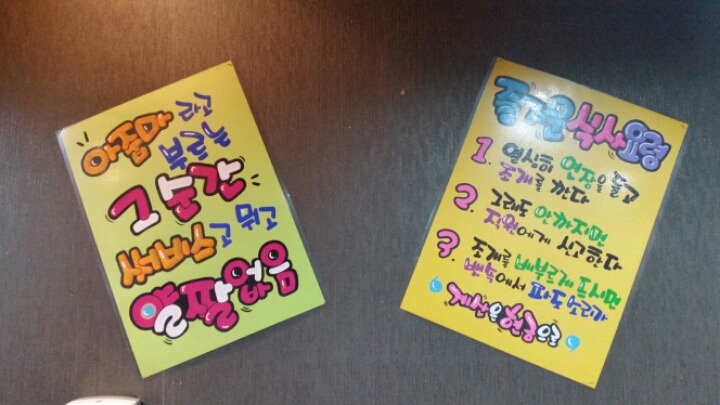 아줌마 라고
부르는
그 순간
써비스고 뭐고
얄짤없음
즐거운 식사요령
1. 열심히 연장을 들고
조개를 깐다
2. 그래도 안까지면
직원에게 신고한다
3. 조개를 배부르게 드시면
뱃속에서 파도 소리가
계산은 현금으로